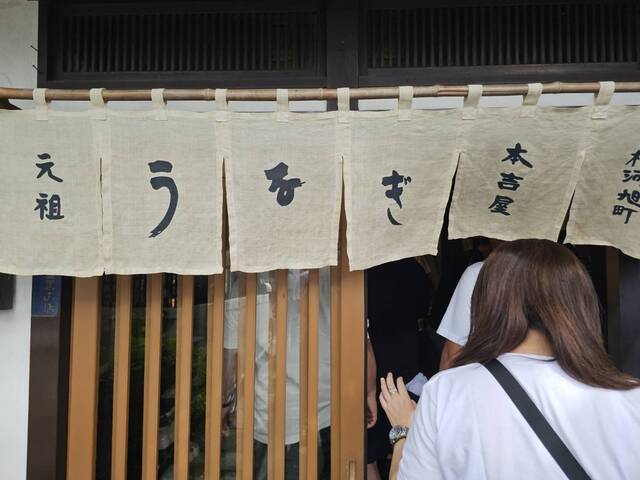 元祖
うなぎ
本吉屋
河旭町